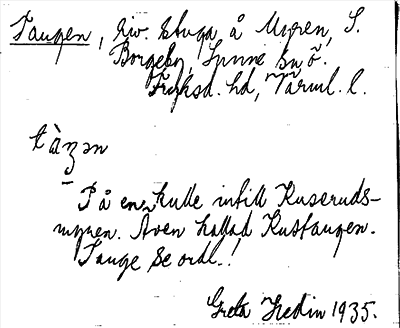 Taugen, riv. stuga å Myren, S.
Borgeby, Sunne sn ö.
Fryksd. hd, Värml. l.
tàʒən
På en kulle intill Kuseruds-
myren. Även kallad Kustaugen.
Tauge se ordl.!
Greta Hedin 1935.